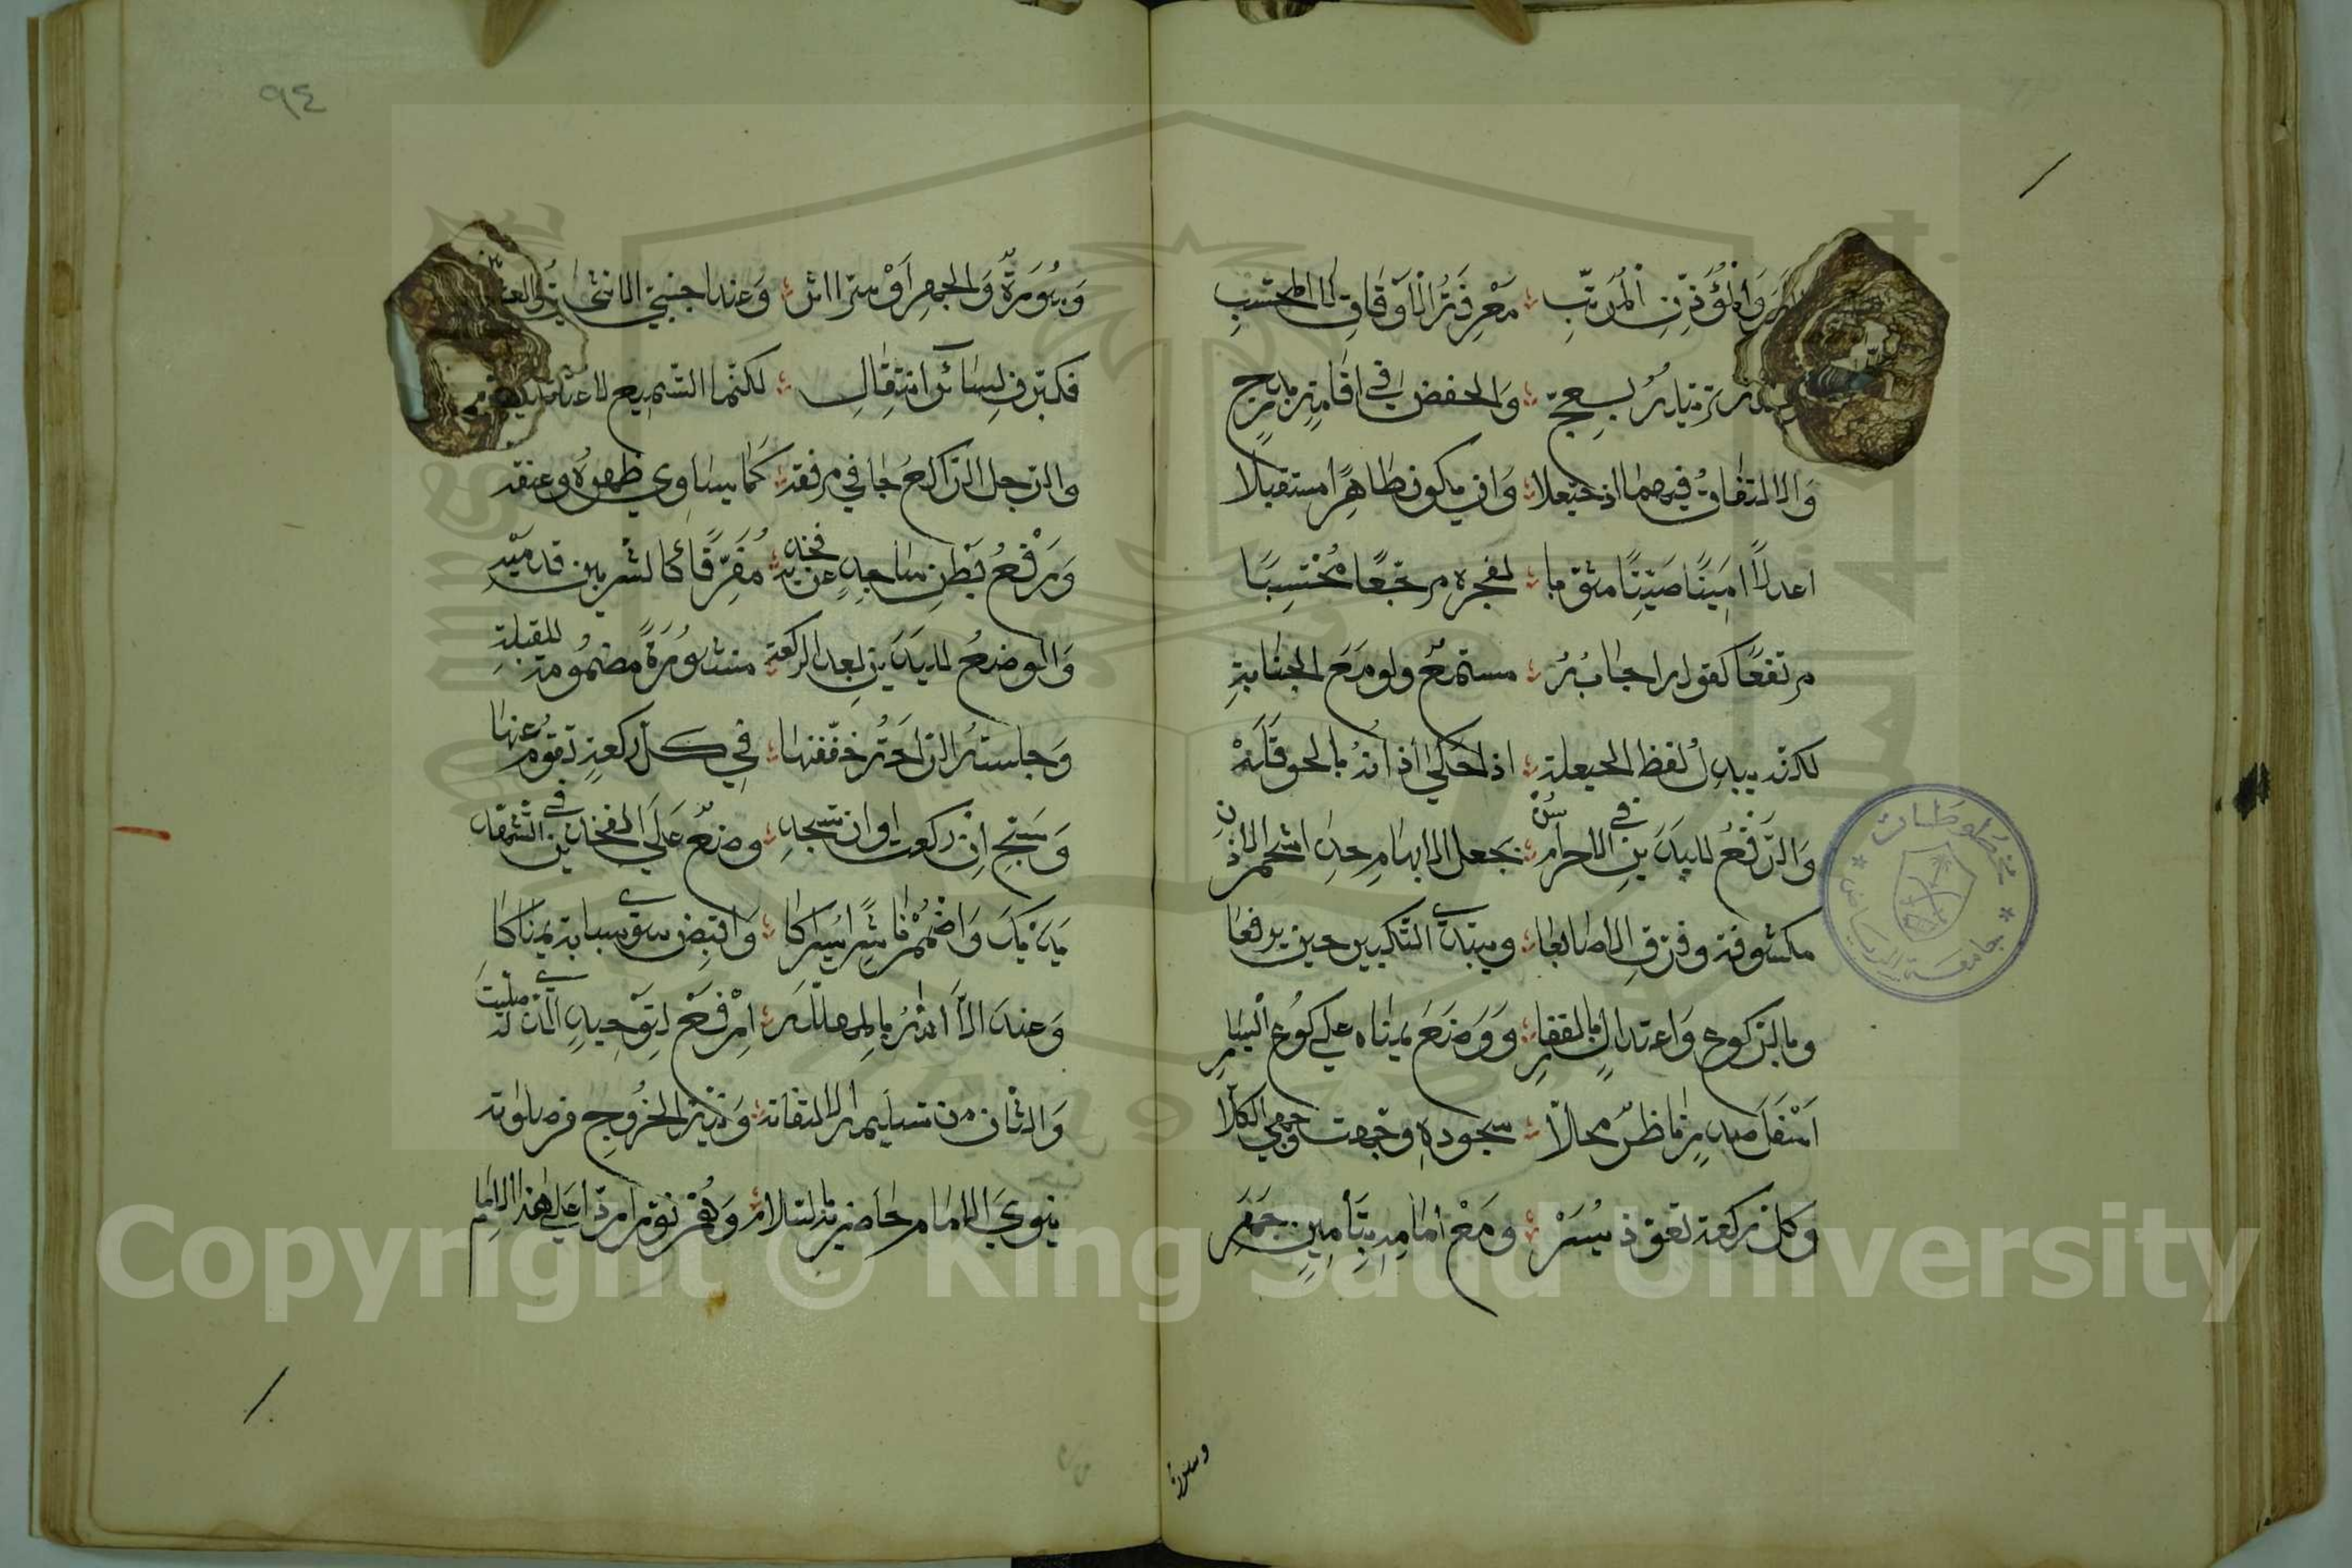 والمؤذن المرتب معرفة الأوقات لا المحتسب
ترتيله بعج والخفض في إقامة بدرج
والالتفات فيهما إذ حيعلا وأن يكون طاهرا مستقبلا
اعدلا امينا صيتا مثوبا لفجره مرجعا محتسبا
مرتفعا كقوله اجابته مستمع ولو مع الجنابة
لكنه يبدل لفظ الحيعلة إذا حكى أذانه بالحوقلة
والرفع لليدين في الاحرام سن بجعل الابهام حذا شحم الاذن
مكشوفة وفرق الاصابعا ويبتدي التكبير حين يرفعا
وبالركوع واعتدال بالفقار ووضع يمناه على كوع اليسار
اسفل صدر ناظرا محالا سجوده وجهت وجهي الكلا
وكل ركعة تعوذ يسر ومع امامه بتأمين جهر
وسورة
٩٤
وسورة والجهر أو سر اثر وعند اجنبي الانثى
فكبرن لسائر انتقال لكنما التسميع لاعتدال
والرجل الراكع جافى مرفقه كما يساوي ظهره وعنقه
ورفع بطن ساجد عن فخذيه مفرقا كالشبر بين قدميه
والوضع لليدين بعد الركعة منشورة مضمومة للقبلة
وجلسة الراحة خففنها في كل ركعة تقوم عنها
وسبح ان ركعت او ان تسجد وضع على الفخذين في التشهد
يديك واضمم ناشرا يسراكا واقبض سوى سبابة يمناكا
وعند الا الله بالمهللة ارفع لتوحيد الذي صليت له
والثان من تسليم الالتفاته ونية الخروج من صلوته
ينوي الامام حاضريه بالسلام وهم نووا ردا على هذا الامام
مخطوطات
جامعة الرياض
Copyright © King Saud University